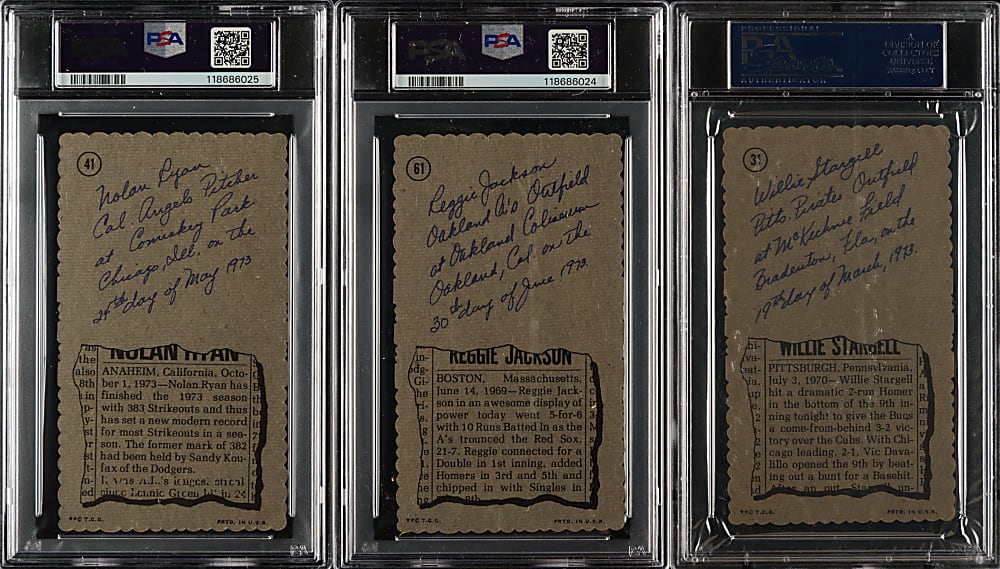 PSA
118686025
41
Nolan Ryan
Cal Angels Pitcher
at Comiskey Park
Chicago, Ill. on the
24th day of May 1973
NOLAN RYAN
ANAHEIM, California, Octo-
ber 1, 1973—Nolan Ryan has
finished the 1973 season
with 383 Strikeouts and thus
has set a new modern record
for most Strikeouts in a sea-
son. The former mark of 382
had been held by Sandy Kou-
fax of the Dodgers.
©T.C.G.
PRTD. IN U.S.A.
PSA
PSA
118686024
61
Reggie Jackson
Oakland A's Outfield
at Oakland Coliseum
Oakland, Cal. on the
30th day of June 1973.
REGGIE JACKSON
BOSTON, Massachusetts,
June 14, 1969—Reggie Jack-
son in an awesome display of
power today went 5-for-6
with 10 Runs Batted In as the
A's trounced the Red Sox,
21-7. Reggie connected for a
Double in 1st inning, added
Homers in 3rd and 5th and
chipped in with Singles in
©T.C.G.
PRTD. IN U.S.A.
PROFESSIONAL
AUTHENTICATOR
A
DIVISION OF
COLLECTORS
UNIVERSE
Willie Stargell
Pitts. Pirates Outfield
at McKechnie Field
Bradenton, Fla, on the
19th day of March, 1973.
WILLIE STARGELL
PITTSBURGH, Pennsylvania,
July 3, 1970—Willie Stargell
hit a dramatic 2-run Homer
in the bottom of the 9th in-
ning tonight to give the Bucs
a come-from-behind 3-2 vic-
tory over the Cubs. With Chi-
cago leading, 2-1, Vic Dava-
lillo opened the 9th by beat-
ing out a bunt for a Basehit.
©T.C.G.
PRTD. IN U.S.A.